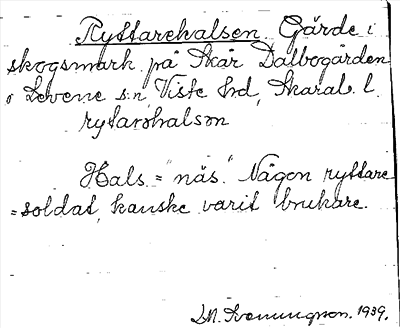 Ryttarehalsen. Gärde i
skogsmark på Skår Dalbogården
Levene s:n, Viste hd, Skarab. l.
rytarshalsen
Hals = "näs." Någon ryttare
= soldat, kanske varit brukare.
1939.